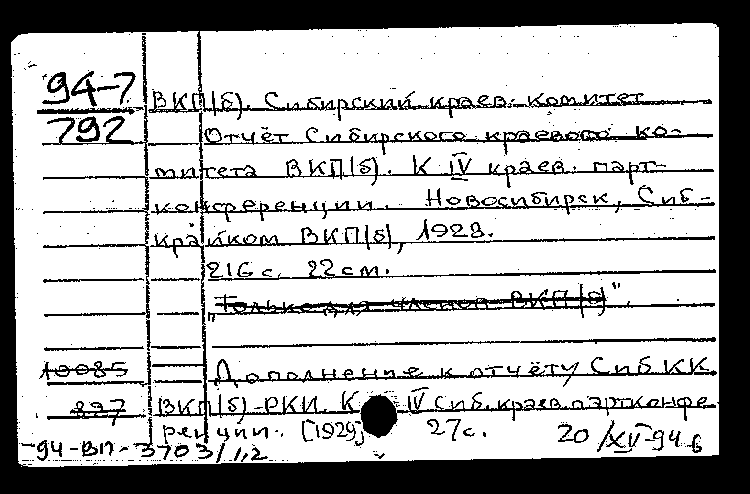 94-7
792
ВКП(б). Сибирский краев. комитет
Отчёт Сибирского краевого ко-
митета ВКП(б). К IV краев. парт-
конференции. Новосибирск, Сиб-
крайком ВКП(б), 1928.
216 с. 22 см.
"Только для членов ВКП(б)".
10085
Дополнение к отчёту Сиб КК
827
ВКП(б)-РКИ. К IV Сиб. краев. партконфе-
ренции. [1929] 27с.
94-ВП-3703/1,2